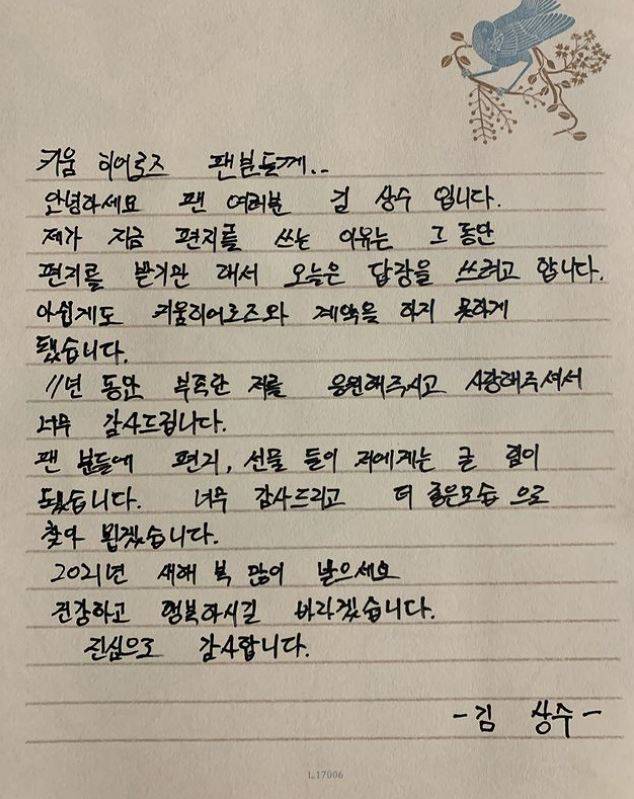 키움 히어로즈 팬분들께..
안녕하세요 팬 여러분 김 상수 입니다.
제가 지금 편지를 쓰는 이유는 그 동안
편지를 받기만 해서 오늘은 답장을 쓰려고 합니다.
아쉽게도 키움히어로즈와 계약을 하지 못하게
됐습니다.
11년 동안 부족한 저를 응원해주시고 사랑해주셔서
너무 감사드립니다.
팬 분들에 편지, 선물 들이 저에게는 큰 힘이
됐습니다. 너무 감사드리고 더 좋은모습 으로
찾아 뵙겠습니다.
2021년 새해 복 많이 받으세요
건강하고 행복하시길 바라겠습니다.
진심으로 감사합니다.
-김 상수-
L17006